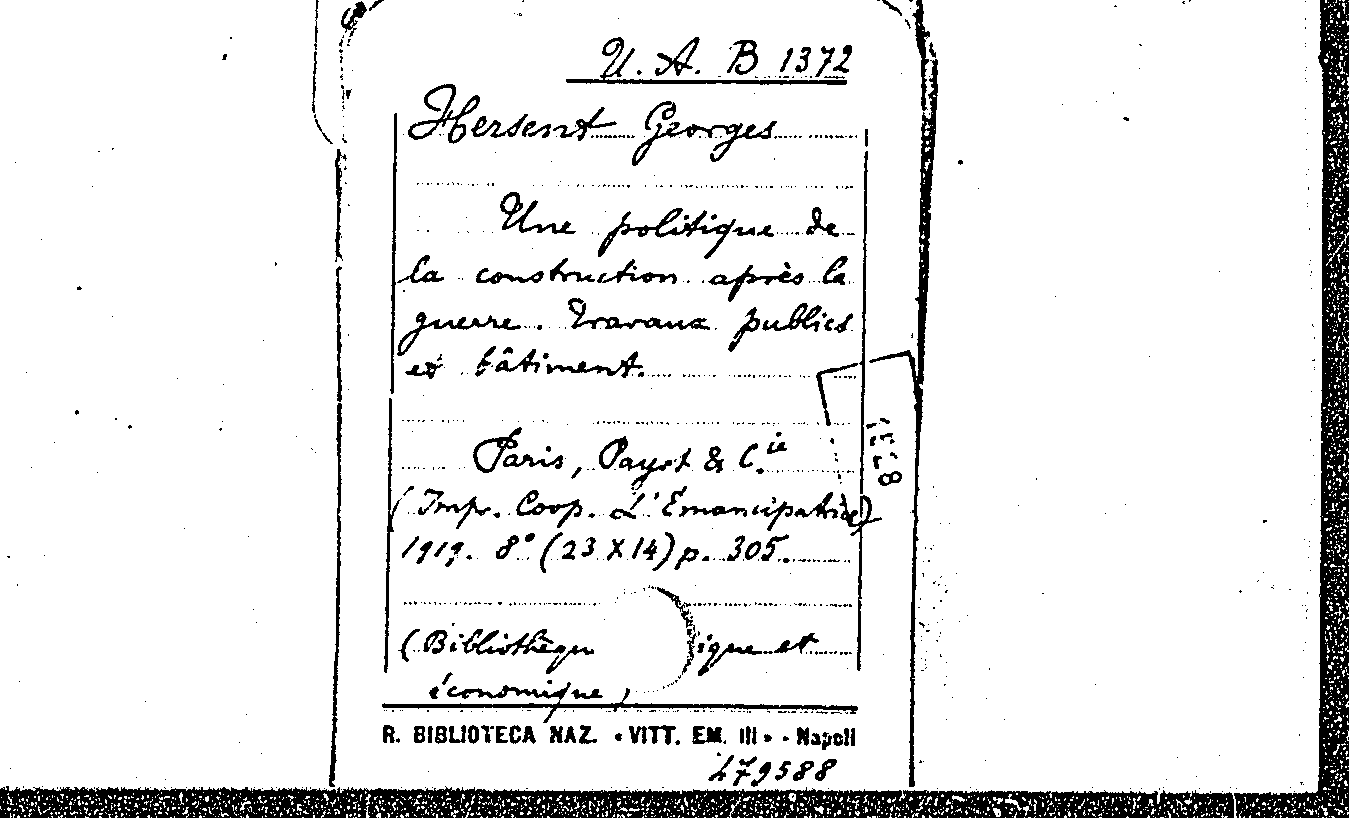 U. A. B 1372
Hersent Georges
Une politique de
la construction après la
guerre. Travaux publics
et bâtiment.
Paris, Payot & C.ie
(Impr. Coop. L'Émancipatrice)
1919. 8° (23 X 14) p. 305.
(Bibliothèqu ique et
économique)
R. BIBLIOTECA NAZ. «VITT. EM. III» - Napoli
479588